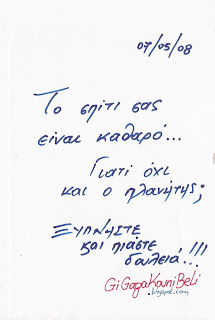 07/05/08
Το σπίτι σας
είναι καθαρό...
Γιατί όχι
και ο πλανήτης;
Ξυπνήστε
και πιάστε
δουλειά!!!
GiGagaKouniBeli
.blogspot.com